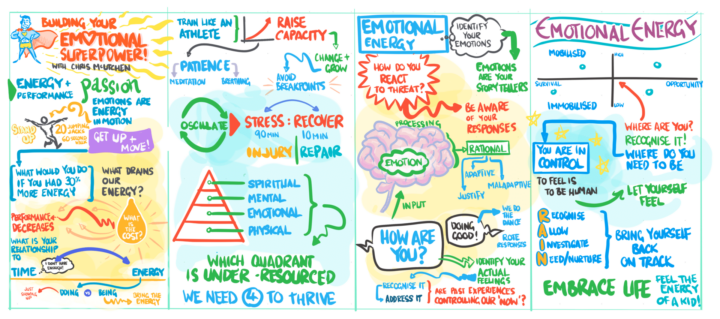 BUILDING YOUR
EMOTIONAL
SUPERPOWER!
WITH CHRIS
ENERGY +
PERFORMANCE
PASSION
EMOTIONS ARE
ENERGY
IN MOTION
20
GET UP +
MOVE!
WHAT WOULD YOU DO
IF YOU HAD 30%
MORE ENERGY
WHAT DRAINS
OUR
ENERGY?
PERFORMANCE
DECREASES
WHAT
IS THE
COST?
WHAT IS YOUR
RELATIONSHIP
TO
TIME
I DON'T HAVE
ENOUGH!
ENERGY
JUST
DOING VS BEING
THE
ENERGY
TRAIN LIKE AN
ATHLETE
RAISE
CAPACITY
PATIENCE
MEDITATION
BREATHING
CHANGE +
GROW
AVOID
BREAKPOINTS
OSCILLATE
STRESS : RECOVER
90 MIN
10 MIN
INJURY
REPAIR
SPIRITUAL
MENTAL
EMOTIONAL
PHYSICAL
WHICH QUADRANT
IS UNDER-RESOURCED
WE NEED 4 TO THRIVE
EMOTIONAL
ENERGY
IDENTIFY
YOUR
EMOTIONS
HOW DO YOU
REACT
TO THREAT?
EMOTIONS
ARE YOUR
STORY TELLERS
BE AWARE
OF YOUR
RESPONSES
PROCESSING
EMOTION
RATIONAL
ADAPTIVE
MALADAPTIVE
JUSTIFY
INPUT
HOW ARE
YOU?
DOING
GOOD!
WE DO
THE
DANCE
ROTE
RESPONSES
IDENTIFY YOUR
ACTUAL
FEELINGS
RECOGNISE IT
ADDRESS IT
ARE PAST EXPERIENCES
CONTROLLING OUR 'NOW'?
EMOTIONAL ENERGY
MOBILISED
HIGH
SURVIVAL
OPPORTUNITY
IMMOBILISED
LOW
WHERE ARE YOU?
RECOGNISE IT!
WHERE DO YOU
NEED TO BE
YOU ARE IN
CONTROL
TO FEEL IS
TO BE HUMAN
LET YOURSELF
FEEL
RECOGNISE
ALLOW
INVESTIGATE
NEED/NURTURE
BRING YOURSELF
BACK
ON TRACK
EMBRACE LIFE
FEEL THE
ENERGY
OF A KID!